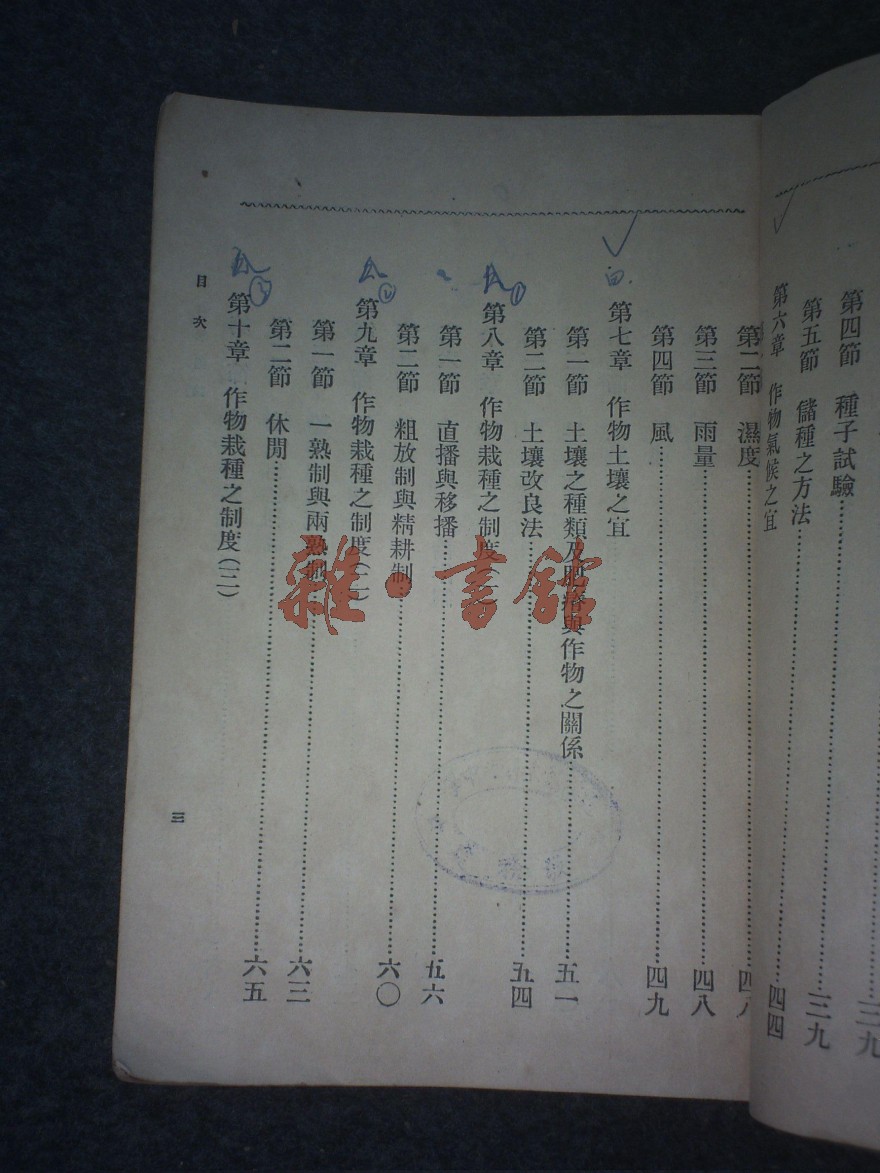 第四節 種子試驗……三九
第五節 儲種之方法……三九
第六章 作物氣候之宜
四四
第二節 濕度……四八
第三節 雨量……四八
第四節 風……四九
第七章 作物土壤之宜
第一節 土壤之種類及肥瘠與作物之關係……五一
第二節 土壤改良法……五四
第八章 作物栽種之制度(一)
第一節 直播與移播……五六
第二節 粗放制與精耕制……六〇
第九章 作物栽種之制度(二)
第一節 一熟制與兩熟制……六三
第二節 休閒……六五
第十章 作物栽種之制度(三)
目次
三
雜·書館